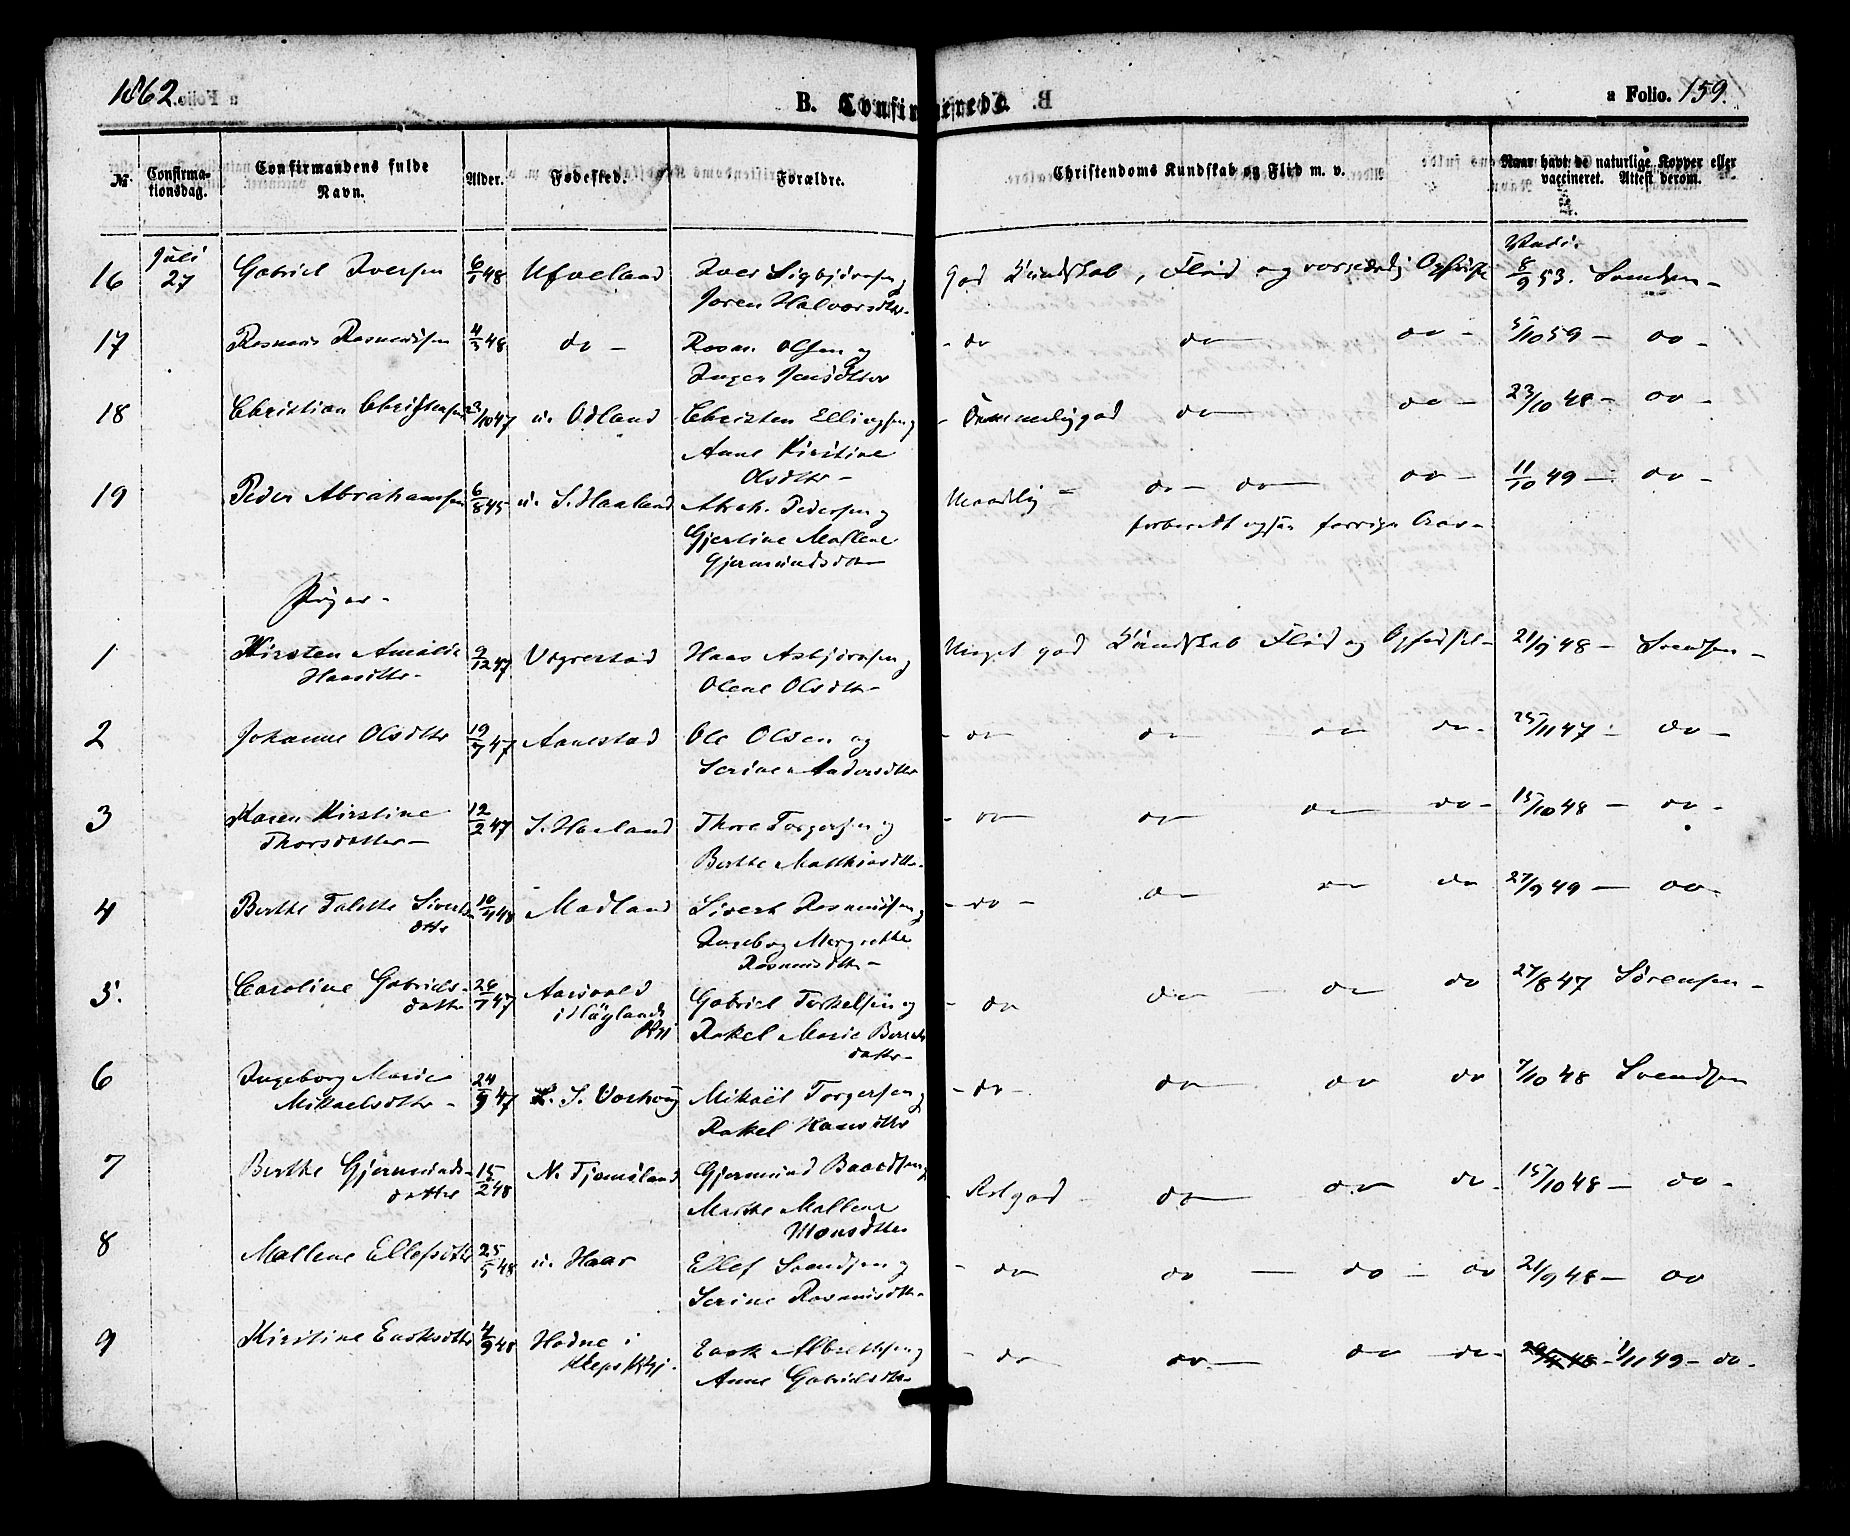 1862.
B. Confirmerede.
a Folio. 159.
No. Confirmationsdag. Confirmandens fulde Navn. Alder. Fødested. Forældre. Christendoms Kundskab og Flid m. v. Naar havt de naturlige Kopper eller vaccineret. Attest derom.
16 Juli 27 Gabriel Iversen 6/1 48 Ufveland Iver Sigbjørnsen og God Kundskab, Flid og Vacc. 8/9 53. Svendsen -
Joren Halvorsdtr.
17 Rasmus Rasmussen 4/5 48 do - Rasm. Olsen og - do do do - 5/10 59 - do -
Inger Jensdtter
18 Christian Christensen 23/10 47 u. Odland Christen Ellingsen og - Temmelig god do do - 23/10 48 - do -
Anne Kirstine
Olsdtr -
19 Peder Abrahamsen 6/8 45 u. S. Haaland Abrah. Pedersen og Maadelig - do - do - do - 11/10 49 - do -
Gjertine Mallene forberedt ogsaa forrige Aar -
Gjermundsdtr
Piger -
1 Kirsten Amalie 9/12 47 Vigrestad Hans Asbjørnsen og Meget god Kundskab Flid og Opførsel - 21/9 48 - Svendsen -
Hansdtr - Olene Olsdtr -
2 Johanne Olsdtr 19/7 47 Aanestad Ole Olsen og - do do do do - 25/11 47 - do -
Serine Andersdtr
3 Karen Kirstine 12/2 47 S. Haaland Thore Torgersen og - do do do do - 15/10 48 - do -
Thorsdatter - Berthe Matthiasdtr.
4 Berthe Talette Siverts- 10/4 48 Madland Sivert Rasmussen og - do - do do do 27/9 49 - do -
dtr Ingeborg Margrethe
Rasmusdtr -
5. Caroline Gabriels- 26/7 47 Aarsvold Gabriel Torkelsen og - do do - do do 27/8 47 Sörensen -
datter i Höylands Rakel Marie Berents
Prgj datter -
6 Ingeborg Marie 24/9 47 S. Varhoug Mikael Torgersen og - do - do do do 7/10 48 Svendsen
Mikaelsdtr - Rakel Hansdtr
7 Berthe Gjermunds- 15/2 48 N. Tjemsland Gjermund Baardsen og - Ret god do do do - 15/10 48 - do -
datter Marthe Mallene
Monsdtter
8 Mallene Ellefsdtr 25/5 48 u. Haar Ellef Svendsen og - do do - do - do 21/9 48 - do
Serine Rasmusdtr -
9 Kirstine Enoksdtr 4/9 48 Hodne i Enok Albretsen og - do do - do - do - 1/11 49 - do -
Kleps Prgj. Anne Gabrielsdtr